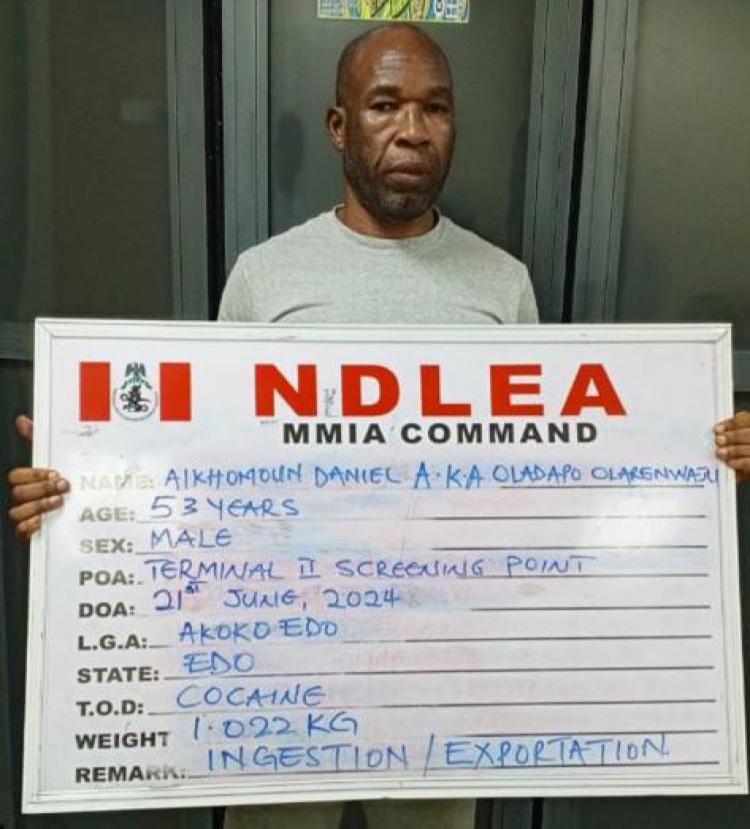 NDLEA
MMIA COMMAND
NAME: AIKHOMOUN DANIEL A.K.A OLADAPO OLARENWAJU
AGE: 53 YEARS
SEX: MALE
POA: TERMINAL II SCREENING POINT
DOA: 21ST JUNE, 2024
L.G.A: AKOKO EDO
STATE: EDO
T.O.D: COCAINE
WEIGHT 1.022 KG
REMARK: INGESTION / EXPORTATION